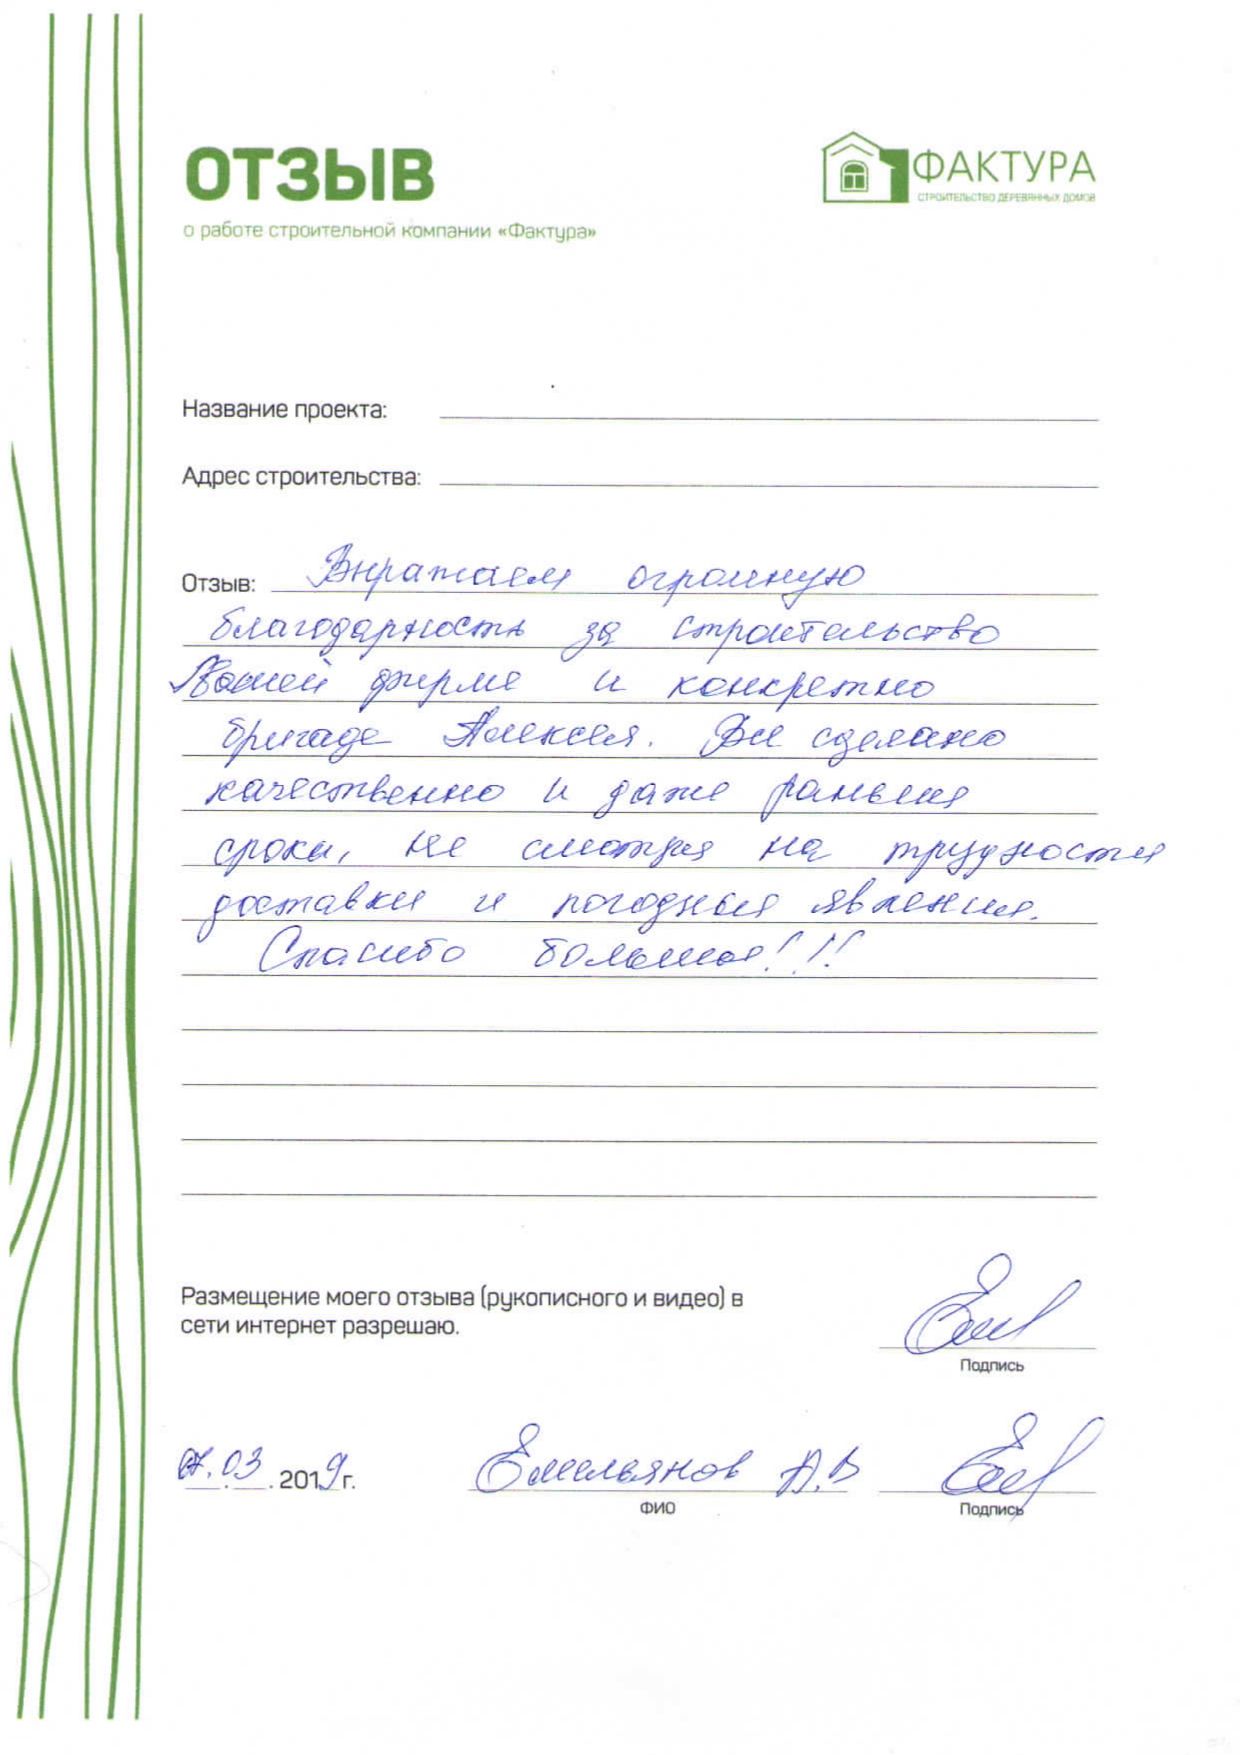 ОТЗЫВ
о работе строительной компании «Фактура»
ФАКТУРА
СТРОИТЕЛЬСТВО ДЕРЕВЯННЫХ ДОМОВ
Название проекта:
Адрес строительства:
Отзыв: Выражаем огромную
благодарность за строительство
Вашей фирме и конкретно
бригаде Алексея. Все сделано
качественно и даже раньше
срока, не смотря на трудности
доставки и погодные явления.
Спасибо большое!!!
Размещение моего отзыва (рукописного и видео) в
сети интернет разрешаю.
Подпись
07.03.2019г. Емельянов А.В
ФИО Подпись